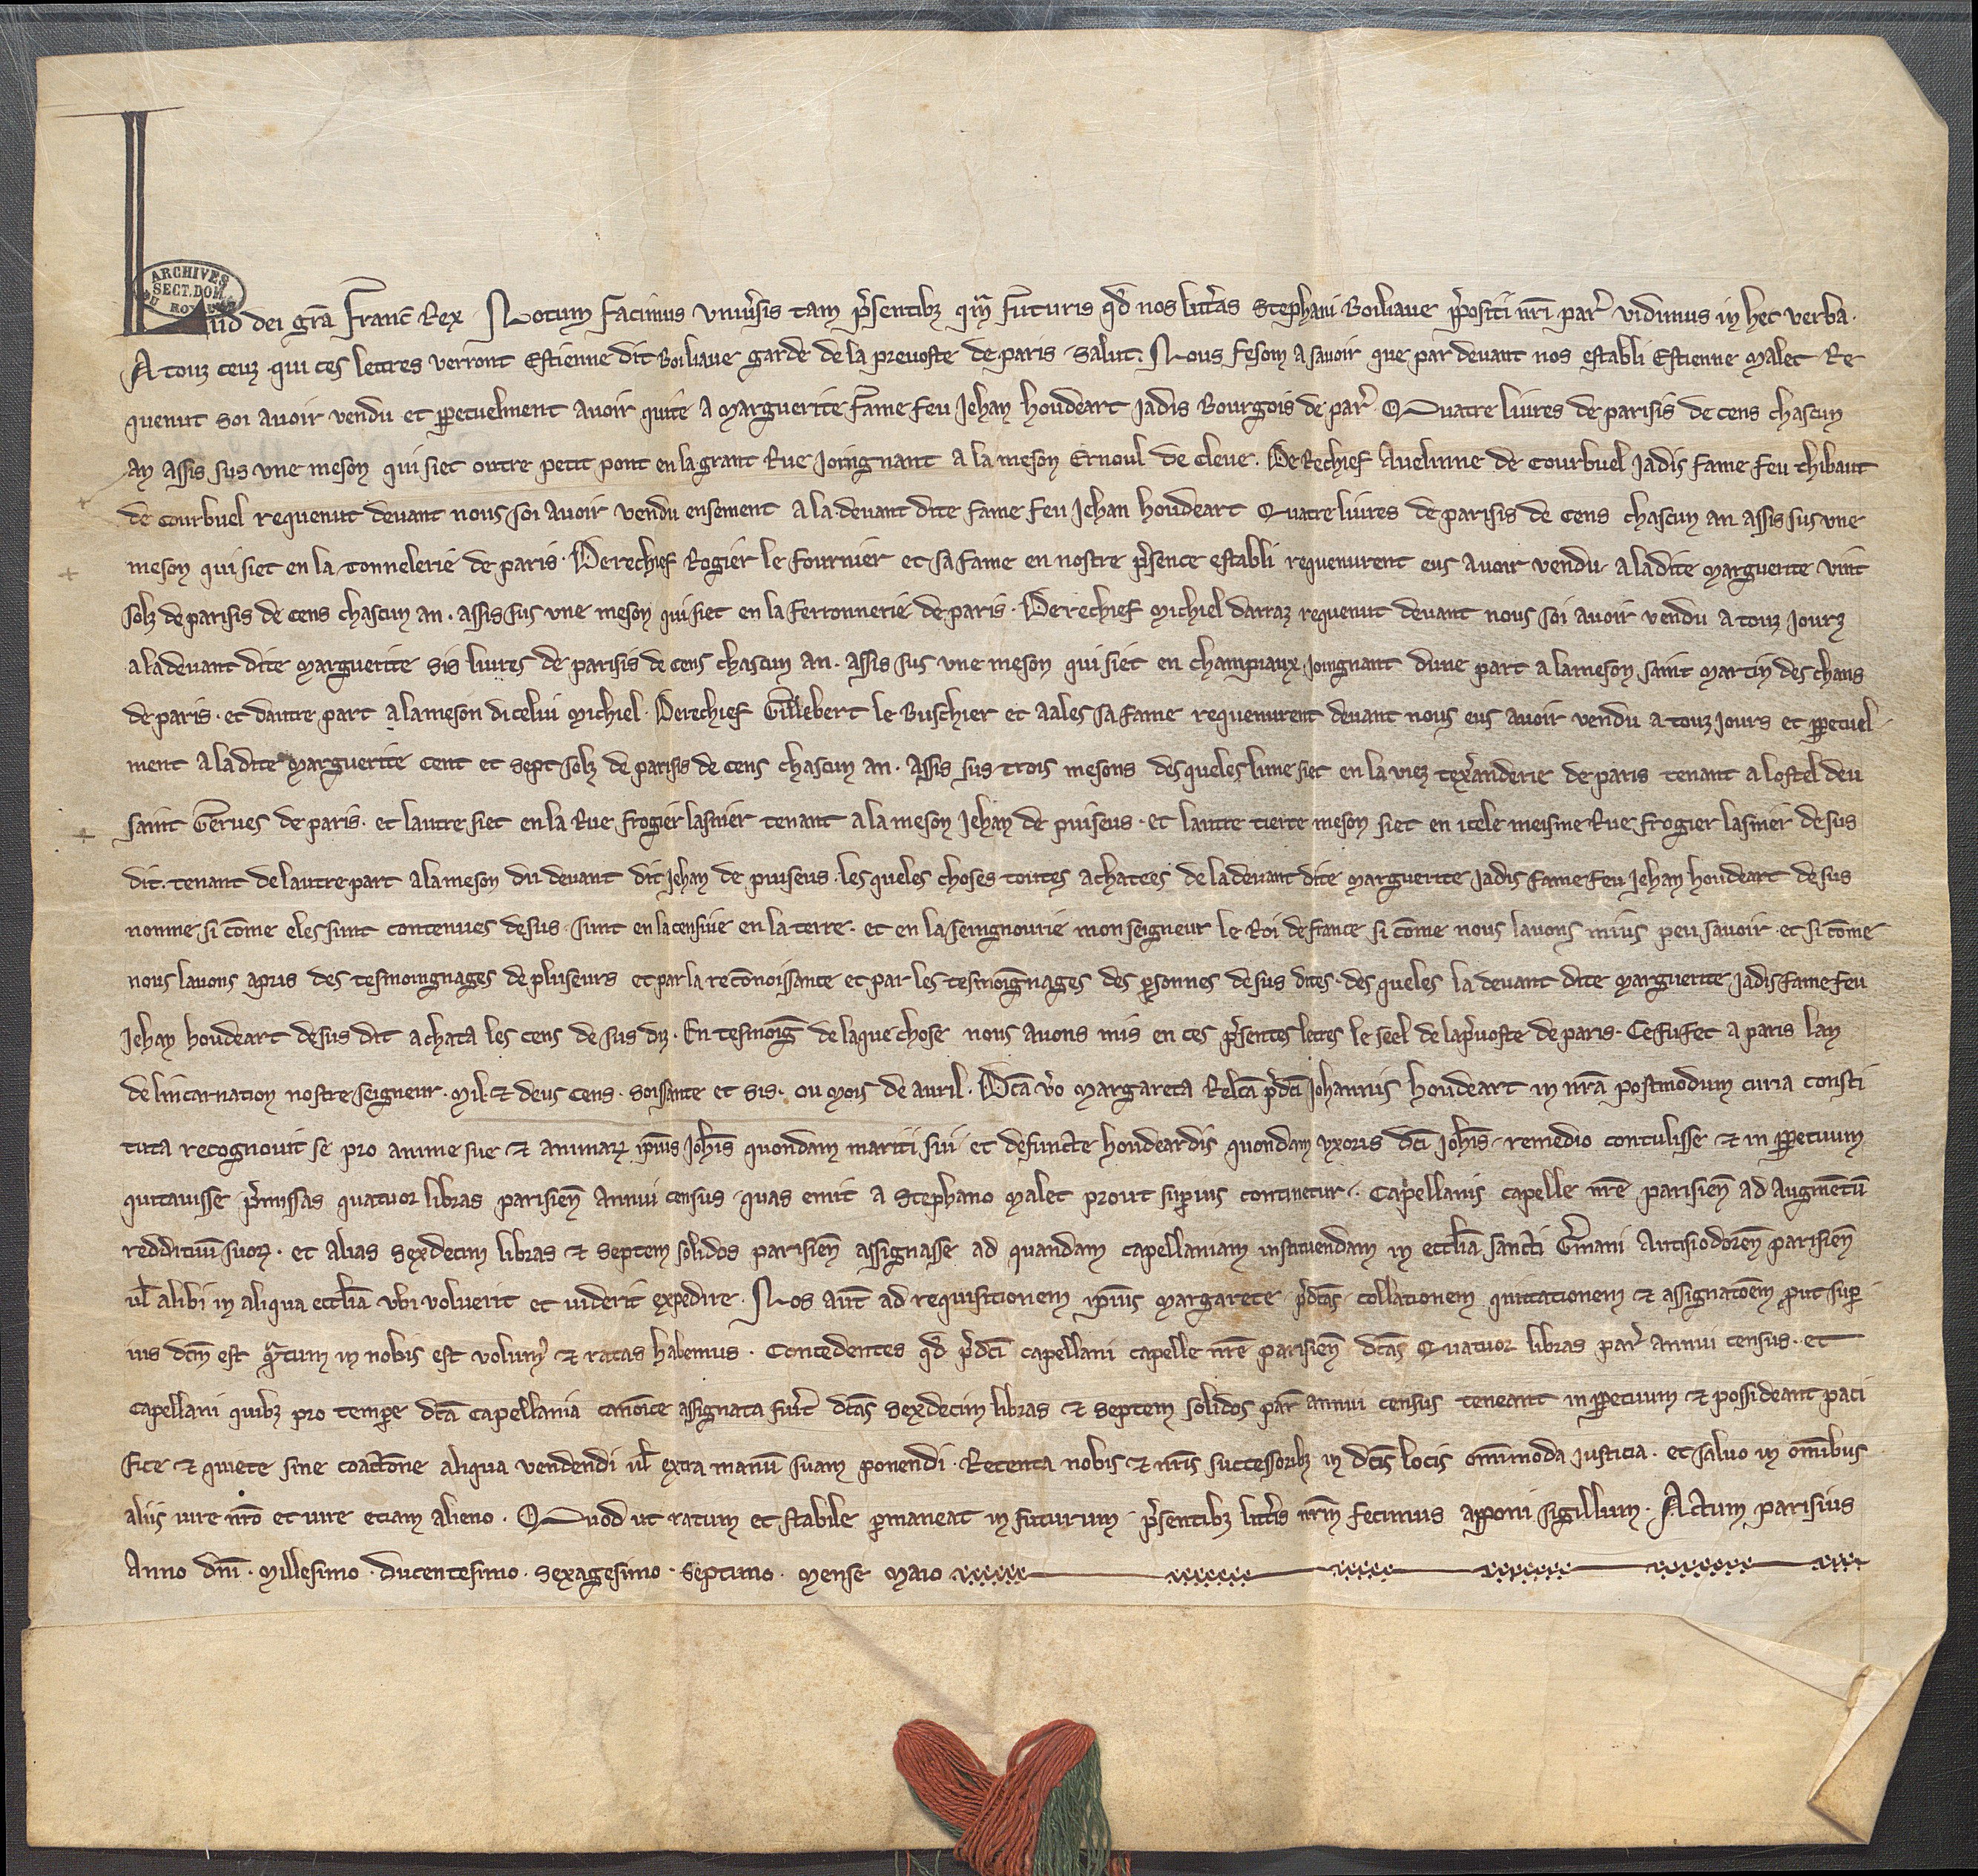 ARCHIVES
SECT. DOM.
DU ROYAUME
Lud dei gra Franc Rex Notum facimus Universis tam presentibz qm futuris qd nos litteras Stephani Boiliaue prepositi nri par vidimus in hec verba.
A touz ceuz qui ces lettres verront Estienne dit Boiliaue garde de la prevoste de paris Salut. Nous fesom a savoir que par devant nos establi Estienne Malet Re
quenut soi avoir vendu et perpetuelment avoir quite a Marguerite fame feu Jehan houdeart jadis Bourgois de par Quatre livres de parisis de cens chascun
an assis sus une meson qui siet outre petit pont en la grant Rue joingnant a la meson Ernoul de Cleue. De Rechief Aveline de Courbuel jadis fame feu thibaut
de Courbuel requenut devant nous soi avoir vendu ensement a la devant dite fame feu Jehan houdeart Quatre livres de parisis de cens chascun an assis sus une
meson qui siet en la tonnelerie de paris. Derechief Rogier le fournier et sa fame en nostre presence establi requenurent eus avoir vendu a la dite Marguerite vint
solz de parisis de cens chascun an. assis sus une meson qui siet en la ferronnerie de paris. Derechief Michiel darraz requenut devant nous soi avoir vendu a touz jourz
a la devant dite Marguerite sis livres de parisis de cens chascun an. assis sus une meson qui siet en champiaux joingnant dune part a la meson saint Martin des chans
de paris. et dautre part a la meson dicelui Michiel. Derechief Gillebert le Buschier et aales sa fame requenurent devant nous eus avoir vendu a touz jours et perpetuel
ment a la dite Marguerite cent et sept solz de parisis de cens chascun an. Assis sus trois mesons des queles lune siet en la viez texeranderie de paris tenant a lostel deu
saint Gerves de paris. et lautre siet en la Rue frogier lasnier tenant a la meson Jehan de puiseus. et lautre tierce meson siet en icele meisme Rue frogier lasnier desus
dit. tenant de lautre part a la meson du devant dit Jehan de puiseus. les queles choses toutes achatees de la devant dite Marguerite jadis fame feu Jehan houdeart desus
nomme si come eles sunt contenues desus. sunt en la censive en la terre. et en la seingnourie mon seigneur le Roi de france si come nous lavons mius peu savoir et si come
nous lavons apris des tesmoingnages de pluseurs et par la reconnoissance et par les tesmoignages des personnes desus dites. des queles la devant dite Marguerite jadis fame feu
Jehan houdeart desus dit achata les cens de sus diz. En tesmoig de laque chose nous avons mis en ces presentes letres le seel de la prevoste de paris. Ce fu fet a paris lan
de lincarnation nostre seigneur. Mil. & deus cens. soissante et sis. ou mois de avril. Dca vo Margareta Relca predci Johannis houdeart in nra postmodum curia consti
tuta recognovit se pro anime sue & animarum ipius Johis quondam mariti sui et defuncte houdeardis quondam uxoris dci Johis remedio contulisse & in perpetuum
quitavisse premissas quatuor libras parisien annui census quas emit a Stephano Malet prout superius continetur. Capellanis capelle nre parisien ad augmetum
reddituum suorum. et alias sexdecim libras & septem solidos parisien assignasse ad quandam capellaniam instituendam in ecclia sancti Germani Autisiodoren parisien
vel alibi in aliqua ecclia ubi voluerit et viderit expedire. Nos aut ad requisitionem ipius Margarete predcas collationem quittationem & assignatoem prout super
ius dcm est quatum in nobis est volumus & ratas habemus. Concedentes qd predci capellani capelle nre parisien dcas Quatuor libras par annui census. et
capellani quibz pro tempore dca capellania canoice assignata fuerit dcas sexdecim libras & septem solidos par annui census teneant in perpetuum & possideant paci
fice & quiete sine coactione aliqua vendendi vel extra manum suam ponendi. Retenta nobis & nris successoribz in dcis locis omimoda justicia. et salvo in omibus
aliis jure nro et jure etiam alieno. Quod ut ratum et stabile permaneat in futurum presentibz litteris nrm fecimus apponi sigillum. Actum parisius
Anno dni. Millesimo. Ducentesimo. Sexagesimo. Septimo. Mense Maio